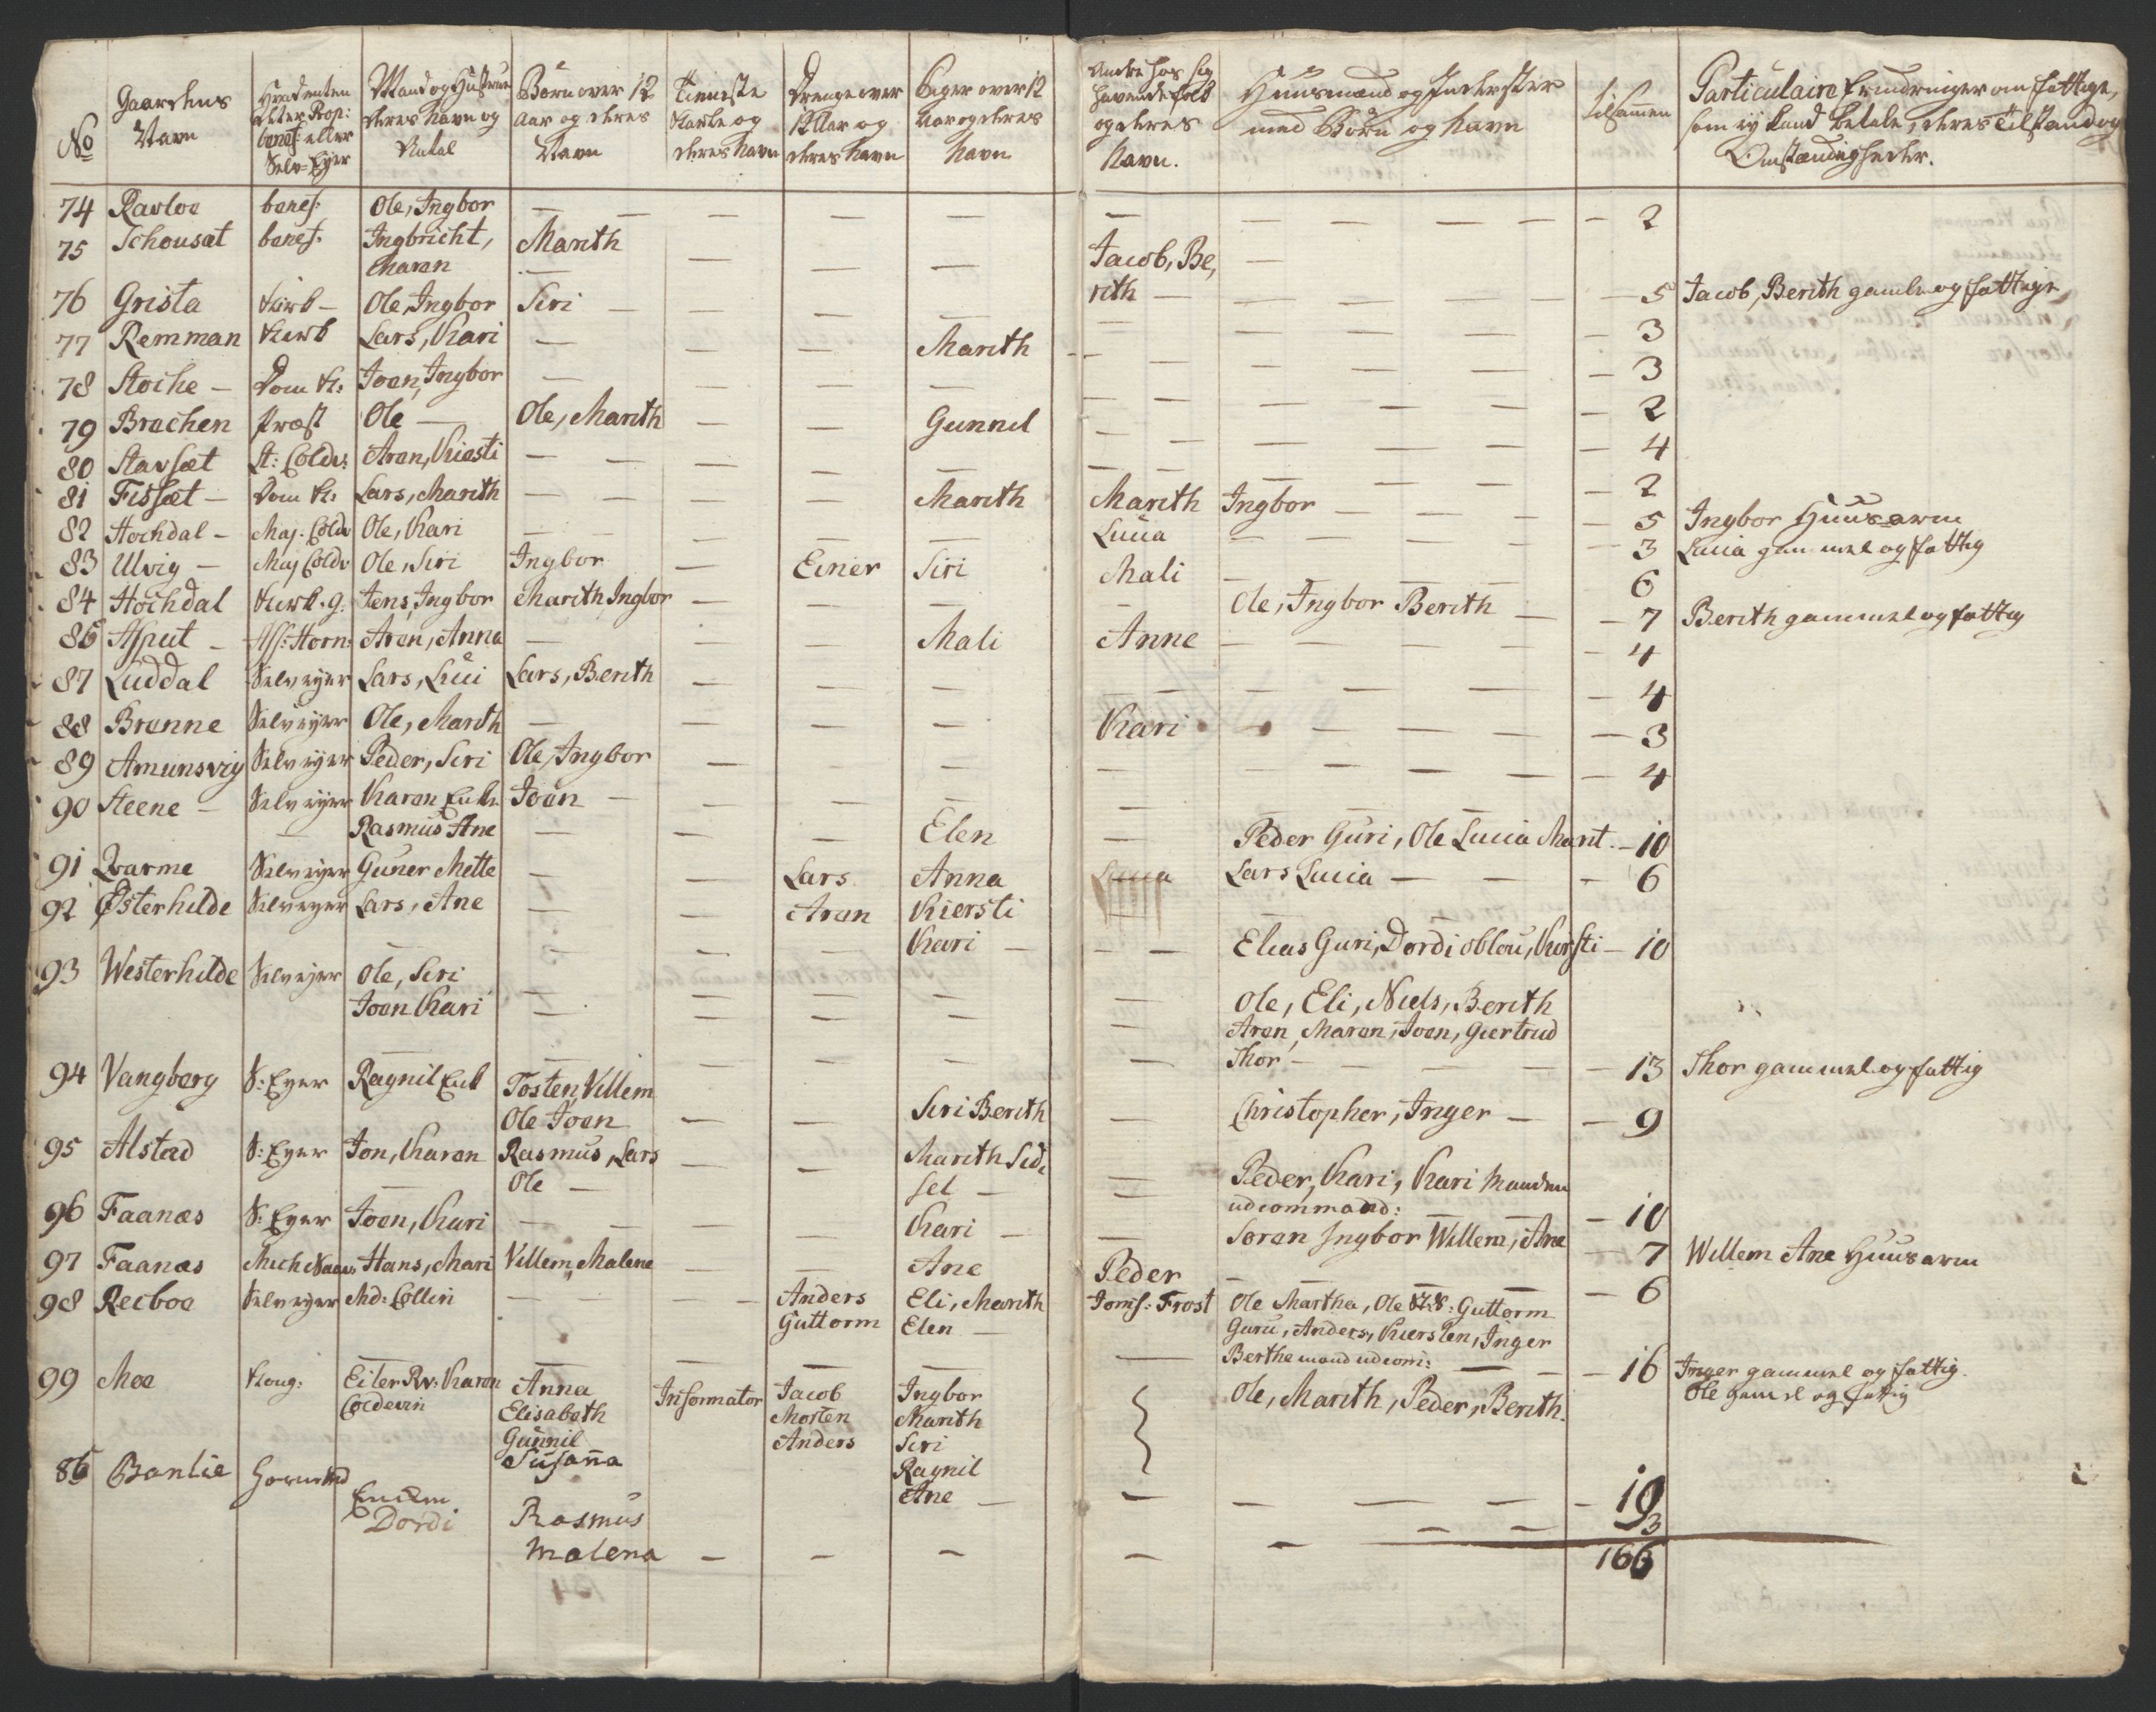 No
Gaardens Navn
Hvad enten det er Prop: benef: eller Selv-Ejer
Mand og Hustrue deres Navn og Antal
Børn over 12 Aar og deres Navn
Tieneste Karle og deres Navn
Drenge over 12 Aar og deres Navn
Piger over 12 Aar og deres Navn
Andre hos sig havende folk og deres Navn.
Huusmænd og Inderster med Børn og Navn
tilsammen
Particulaire Erindringer om fattige, som ej kand betale, deres Tilstand og Omstændigheder.
74 Ravloe benef: Ole, Ingbor — — — — — — 2
75 Schouset benef: Ingbricht, Maren Marith — — — Jacob, Berith — 5 Jacob, Berith gamle og fattige
76 Grista Ole, Ingbor Siri — — — — — 3
77 Remman Lars, Kari — — — Marith — — 3
78 Stoche — Dom K: Joen, Ingbor — — — — — — 2
79 Brechen Præst Ole — Ole, Marith — — Gunnel — — 4
80 Stavset Lt: Coldv: Aren, Kiesti — — — — — — 2
81 Fisset — Dom K: Lars, Marith — — — Marith Marith Ingbor — 5 Ingbor Huusarm
82 Hochdal — Maj. Coldv Ole, Kari — — — — Lucia — 3 Lucia gammel og fattig
83 Ulvig — Maj Coldv Ole, Siri Ingbor — Einer Siri Mali — 6
84 Hochdal Jens, Ingbor Marith Ingbor — — — — Ole, Ingbor Berith — 7 Berith gammel og fattig
86 Asput — Ass: Horn: Aren, Anna — — — Mali Anne — 4
87 Luddal Selvejer Lars, Luci Lars, Berith — — — — — 4
88 Brenne Selvejer Ole, Marith — — — — Kari — 3
89 Amunsvig Selvejer Peder, Siri Ole, Ingbor — — — — — 4
90 Steene — Selvejer Karen Enke Joen —
— Rasmus Ane — — — Elen — Peder Guri, Ole Lucia Marit. — 10
91 Qvarme Selvejer Guner Mette — — Lars Anna Lars Lucia — 6
92 Østerhilde Selvejer Lars, Ane — — Aren Kiersti
— — — Kari — — Elias Guri, Dordi oblou, Kirsti — 10
93 Westerhilde Selvejer Ole, Siri — — — — — Ole, Eli, Niels, Berith
Joen Kari — — — — — Aren, Maren, Joen, Giertrud
Thor — 13 Thor gammel og fattig
94 Vangberg S: Eyer Ragnil Enk Tosten, Villem
Ole Joen — — Siri Berith — Christopher, Inger — 9
95 Alstad S: Eyer Jon, Karen Rasmus, Lars — — Marith Sid,
Ole — sel — — Peder, Kari, Kari Manden
udcommand: — 10
96 Faanæs S: Eyer Joen, Kari — — — Kari — — Soren Ingbor Willem, Ane — 7 Willem Ane Huusarm
97 Faanæs Hans, Mari Villem, Malene — — Ane Peder — 6
98 Recboe Selvejer Md: Collin — — Anders Eli, Marith Jomf: Frost Ole Martha, Ole Guttorm
Guttorm Elen — Guru, Anders, Kiersten, Inger
Berthe mand udcom: — 16 Inger gammel og fattig.
99 Moe Kong: Eiler Rv: Karen Anna Informator Jacob Ingbor Ole, Marith, Peder, Berith. Ole gaml og fattig
Coldevin Elisabeth Morten Marith
Gunnil Anders Siri
Susanna Ragnil
Ane — — — 19
86 Banlie Enken Dordi Rasmus
Malena — — — — — 3
166